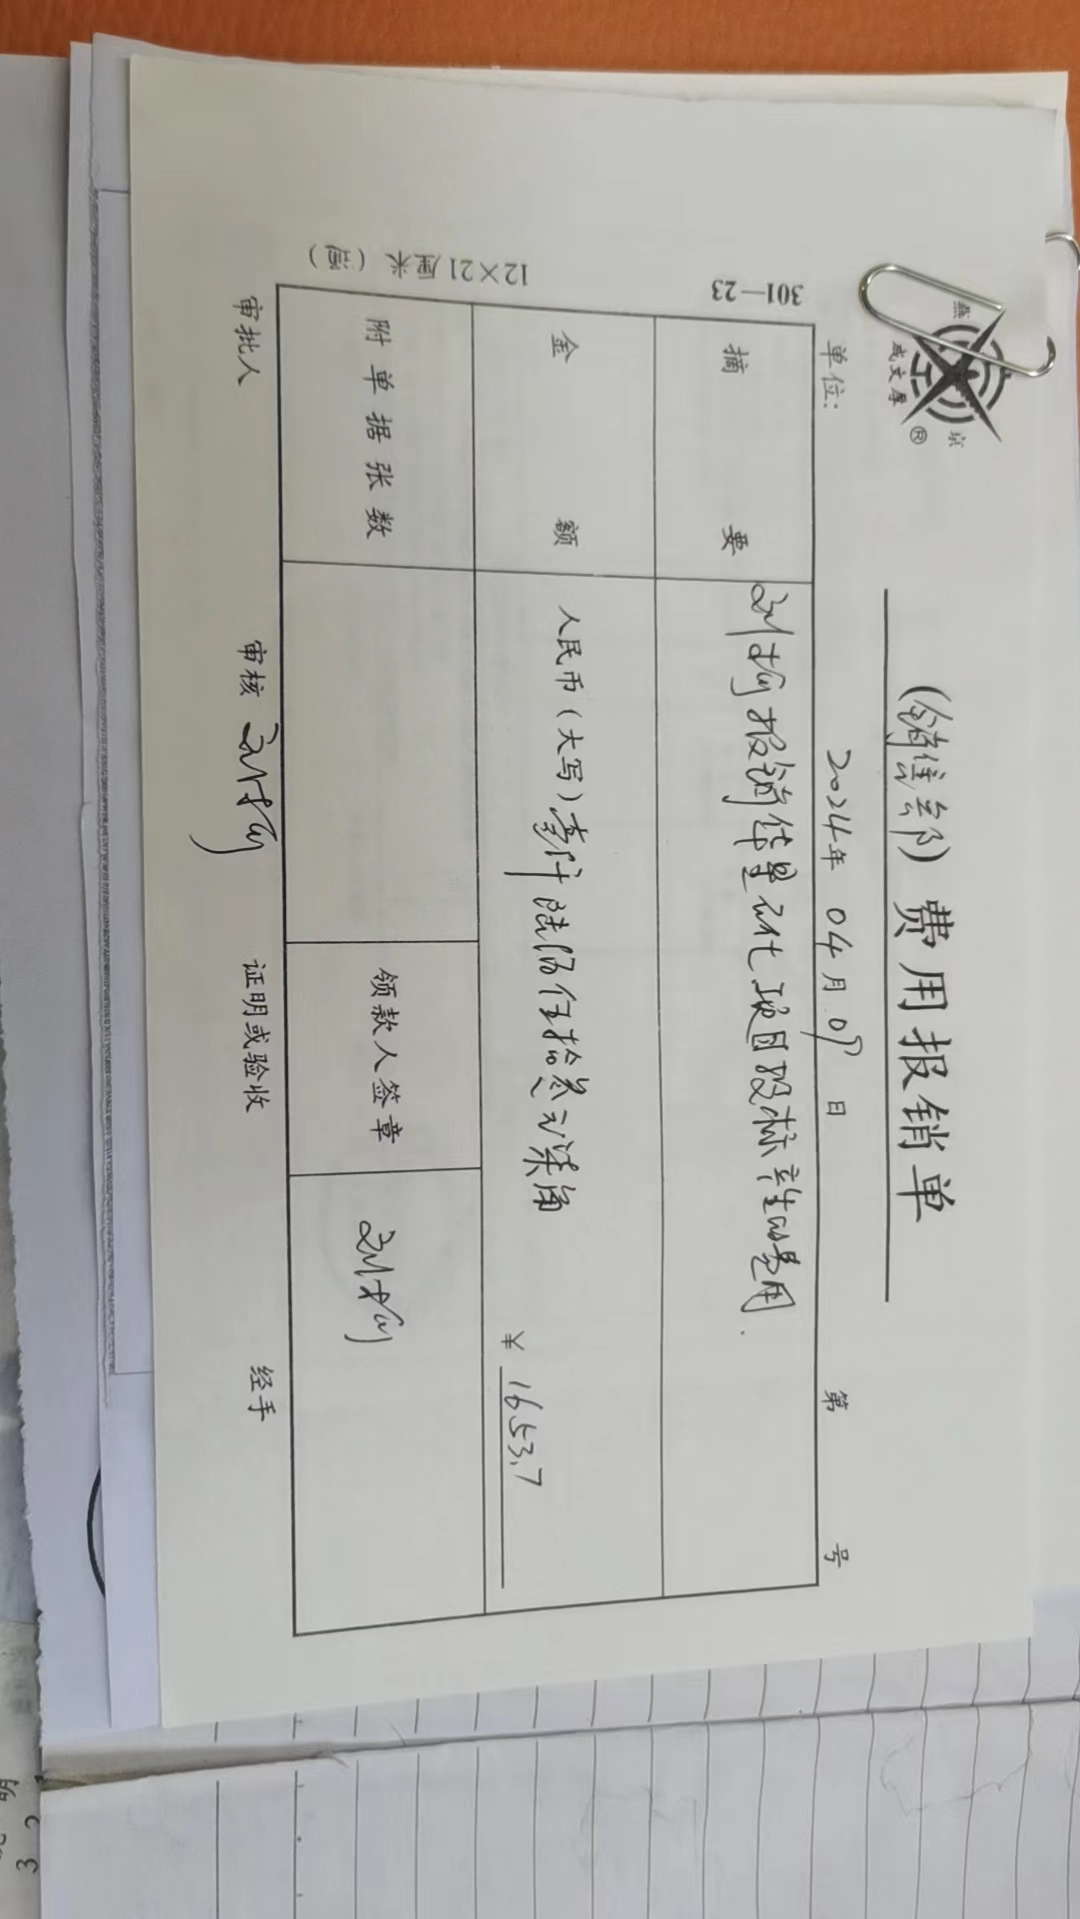 燕京
成文厚
®
(销售部) 费用报销单
单位: 2024年 04月 09日 第 号
摘要 刘杨报销华星 化项目投标产生的费用.
金额 人民币(大写)壹仟陆佰伍拾叁元柒角
¥ 1653.7
附单据张数 领款人签章 刘杨
审批人 审核 刘杨 证明或验收 经手
301—23
12×21厘米 (通)